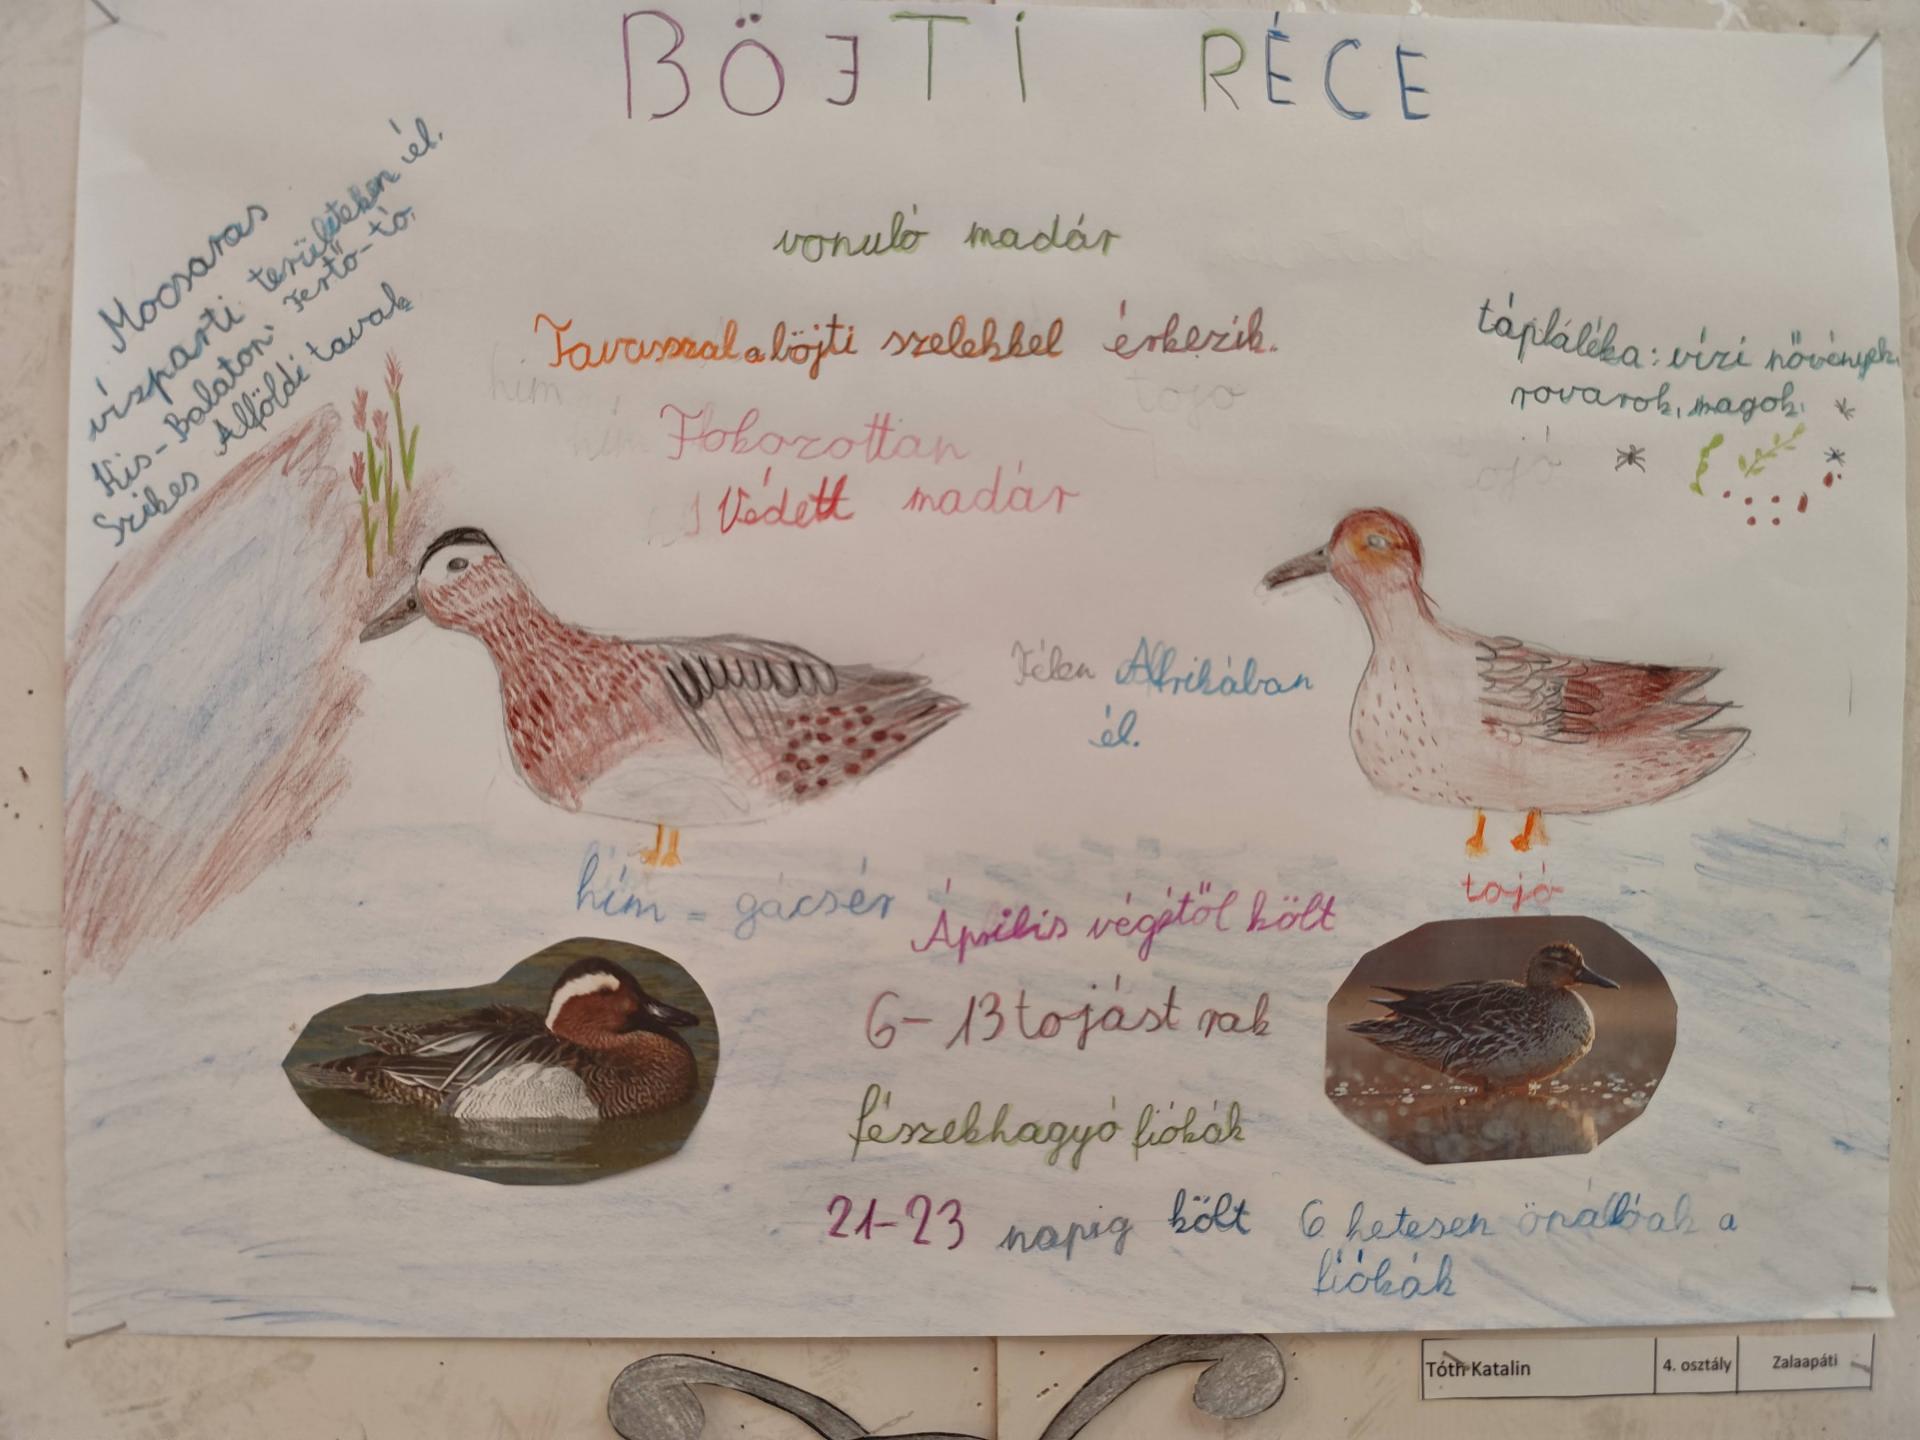 BÖJTI RÉCE
Mocsaras
vízparti területeken él.
Kis-Balaton, Fertő-tó,
Szikes Alföldi tavak
vonuló madár
Tavasszal a böjti szelekkel érkezik.
hím
tojó
Fokozottan
Védett madár
tápláléka: vízi növények,
rovarok, magok.
tojó
Télen Afrikában
él.
hím = gácsér
tojó
Április végétől költ
6-13 tojást rak
fészekhagyó fiókák
21-23 napig költ
6 hetesen önállóak a
fiókák
Tóth Katalin 4. osztály Zalaapáti